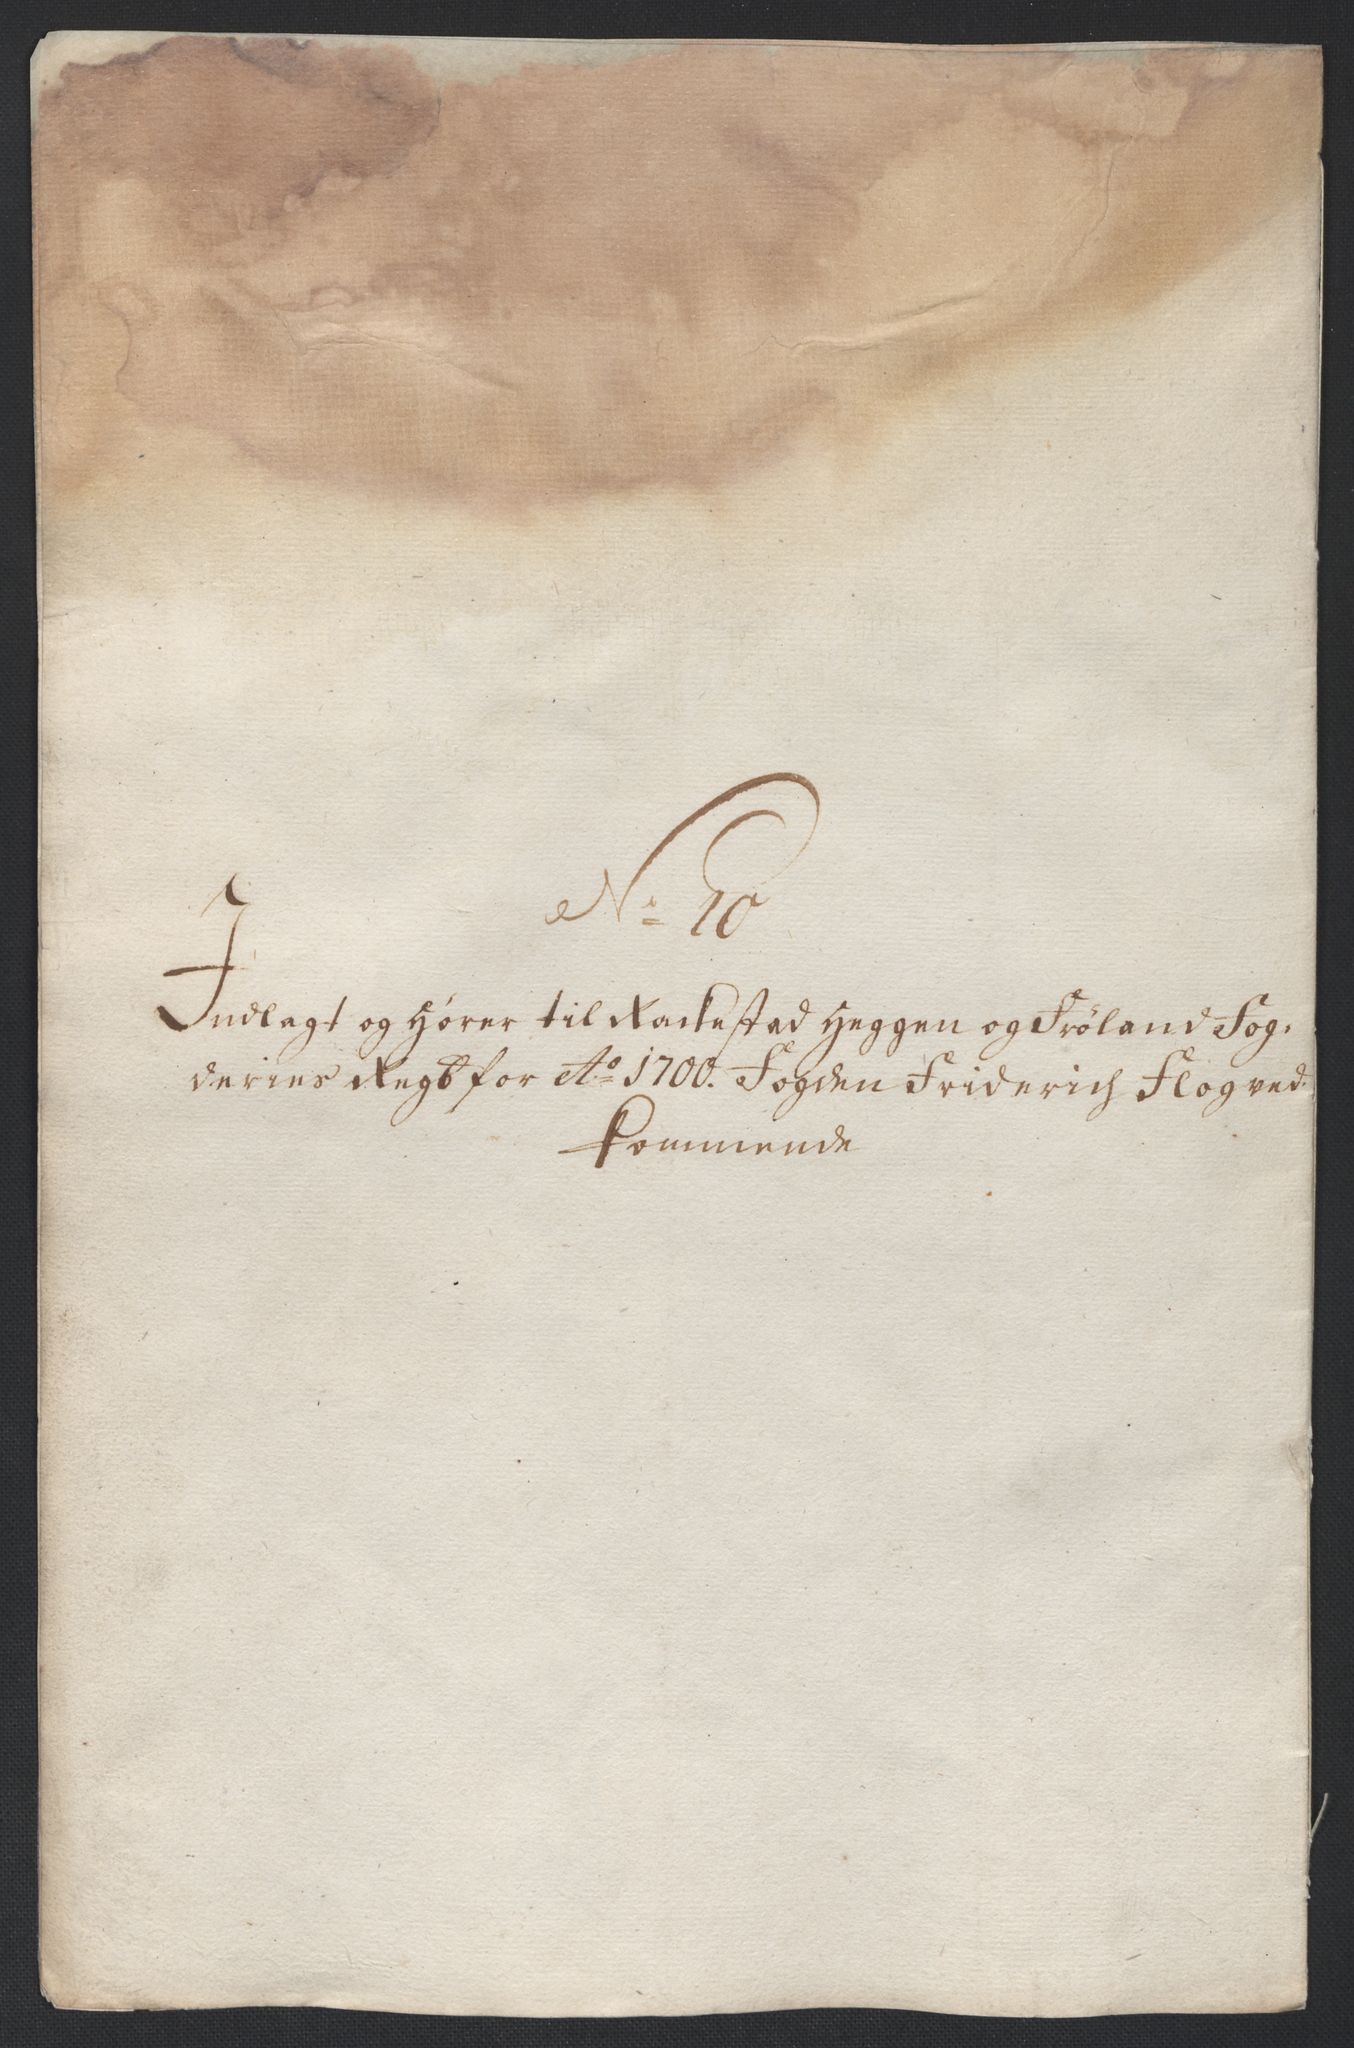 No 10
Indlagt og hører til Rackestad Heggen og Fröland Fog-
deries Regb for Ao 1700. Fogden Friderich Flog ved-
kommende